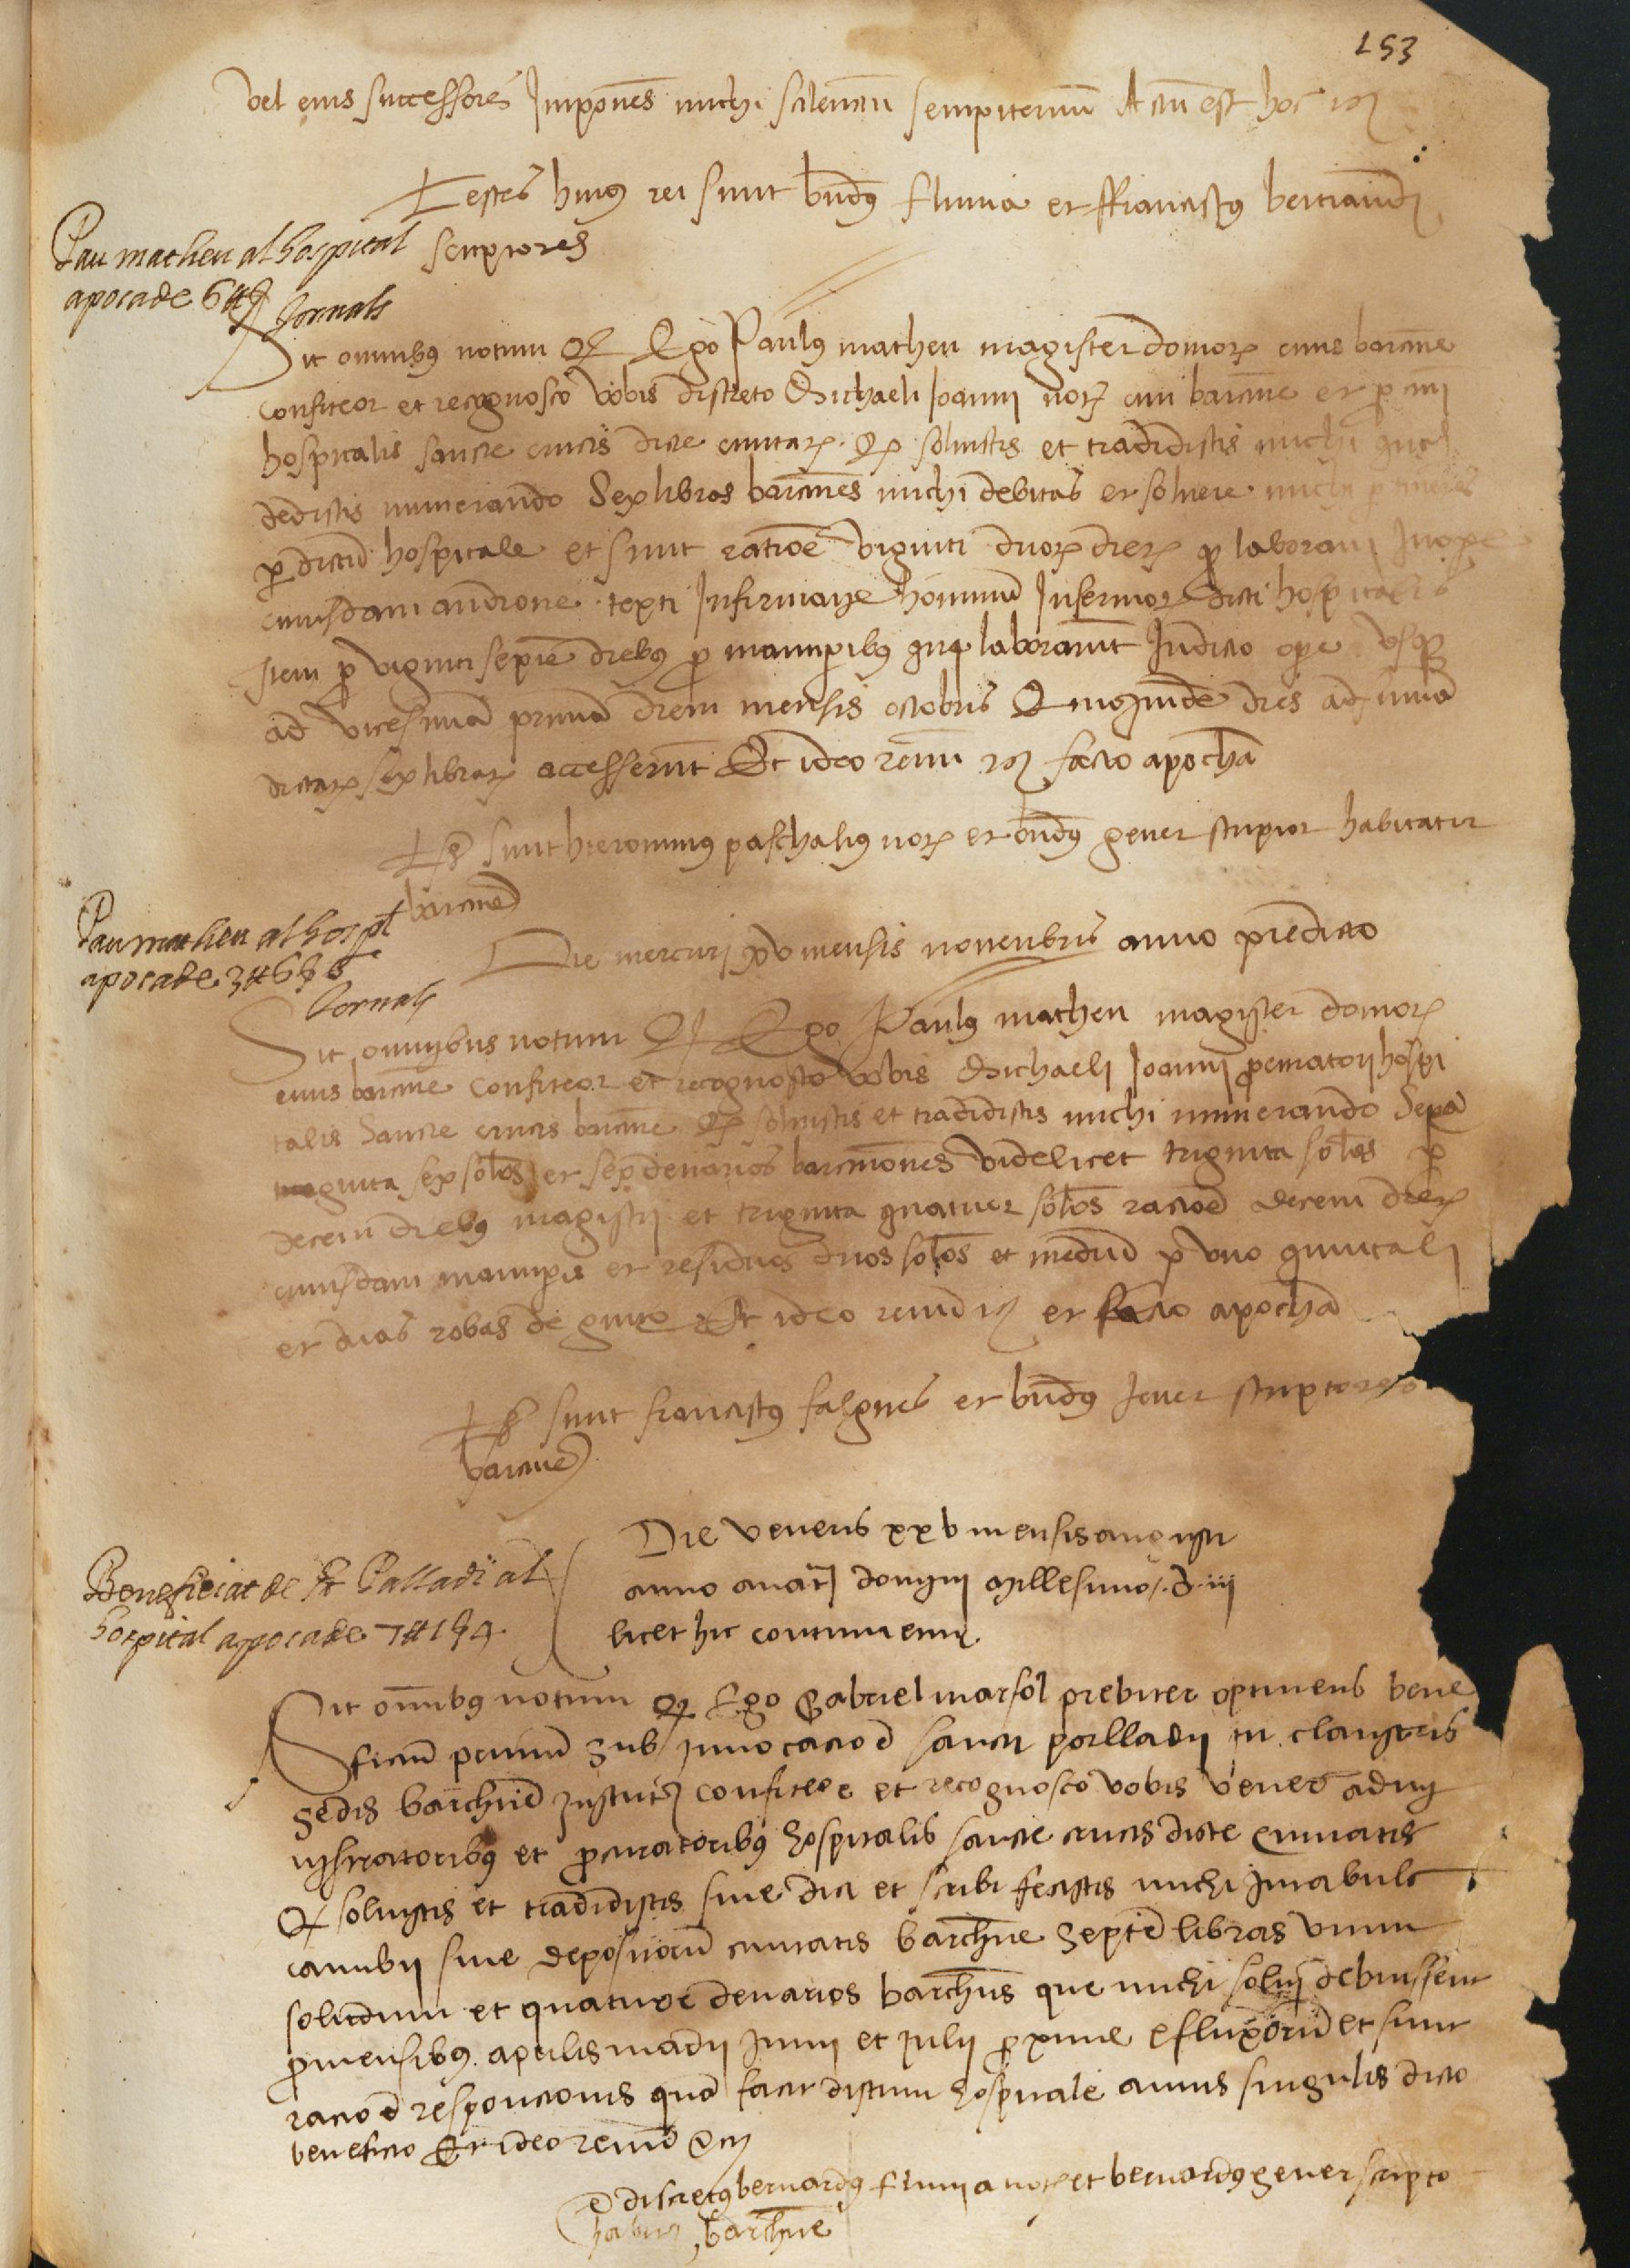 153
vel eius successores Imponens michi silencium sempiternum Actum est hoc
Testes huius rei sunt bnds fluvia et ffranciscus bertrandi
scriptores
Pau matheu al hospital
apoca de 6 ₶
Jornals
Sit omnibus notum q Ego Paulus matheu magister domorum civis barcne
confiteor et recognosco vobis discreto Michaeli Joanni not civi barcne et pro
hospitalis sancte crucis dicte civitatis q solvistis et tradidistis michi
dedistis numerando Sex libras barcnes michi debitas et solvere michi
per dictum hospitale et sunt ratione viginti duorum dierum q laboravi In ope
cuiusdam androne texti Infirmarie hominum Infirmorum dicti hospitalis
Item pro viginti septem diebus pro manipibus qui laborarunt In dicto ope usq
ad vicesimam primam diem mensis octobris dies ad summa
dictarum sex librarum accesserunt Et ideo renun facio apocham
Ts sunt hieronimus paschalius not et bnds gener scriptor habitator
barcne
Pau matheu al hospl
apoca de 3 ₶ 6 s 6
Jornals
Die mercurj xv mensis novenbris anno predicto
Sit omnybus notum q Ego Paulus matheu magister domorum
civis barcne confiteor et recognosco vobis Michaeli Joanny procuratorj hospi
talis Sancte crucis barcne q solvistis et tradidistis michi numerando Sexa
ginta sex solos et sex denarios barcinones videlicet triginta solos p
decem diebus magistrj et triginta quatuor solos racioe decem dierum
cuiusdam manipis et residuos duos solos et medium p uno quintali
et duas robas de guix Et ideo renun et facio apocham
Ts sunt franciscus falgues et bnds Jener scriptores
barcne
Beneficiat de St Palladi al
hospital apoca de 7 ₶ 1 s 4
Die veneris xxv mensis augusti
anno a nat domini millesimo D iii
licet hic continuetur
Sit omnibus notum q Ego Gabriel marsol prebiter optinens bene
ficium primum sub invocacioe sancti palladii in claustris
sedis barchne Instituti confiteor et recognosco vobis vener admi
nistratoribus et procuratoribus hospitalis sancte crucis dicte civitatis
q solvistis et tradidistis sive dici et scribi fecistis michi In tabula
cambii sive depositorum civitatis barchne septem libras unum
solidum et quatuor denarios barchns que michi solvi debuissent
pro mensibus aprilis madii Junii et Julii proxime efluxorum et sunt
racioe responcionis quam facit dictum hospitale annis singulis dicto
beneficio Et ideo renun
discretus bernardus fluvia not et bernardus gener scripto
habit barchne